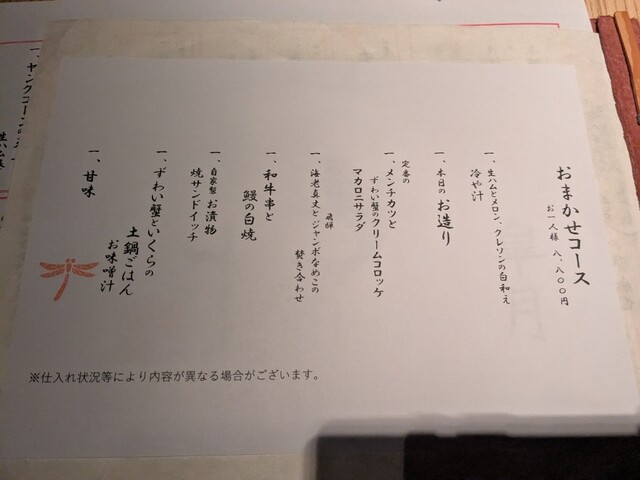 おまかせコース
お一人様 八、八〇〇円
一、生ハムとメロン、クレソンの白和え
冷や汁
一、本日のお造り
定番の
一、メンチカツと
ずわい蟹のクリームコロッケ
マカロニサラダ
飛騨
一、海老真丈とジャンボなめこの
焚き合わせ
一、和牛串と
鰻の白焼
一、自家製お漬物
焼サンドイッチ
一、ずわい蟹といくらの
土鍋ごはん
お味噌汁
一、甘味
※仕入れ状況等により内容が異なる場合がございます。
一、ヤングコーンの